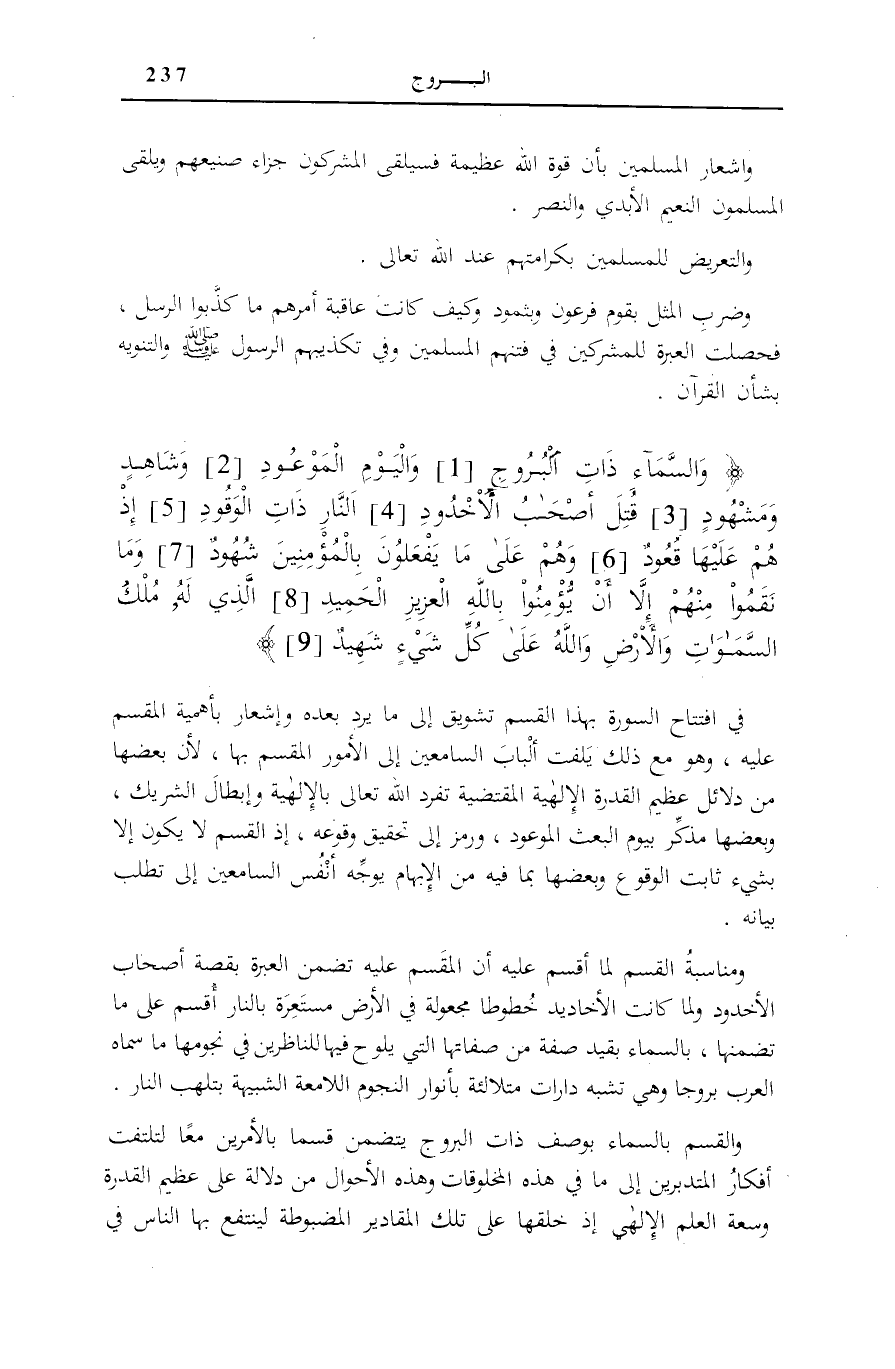 البـــروج 237
واشعار المسلمين بأن قوة الله عظيمة فسيلقى المشركون جزاء صنيعهم ويلقى
المسلمون النعيم الأبدي والنصر .
والتعريض للمسلمين بكرامتهم عند الله تعالى .
وضربِ المثل بقوم فرعون وبثمود وكيف كانت عاقبة أمرهم ما كذَّبوا الرسل ،
فحصلت العبرة للمشركين في فتنهم المسلمين وفي تكذيبهم الرسول ﷺ والتنويه
بشأن القرآن .
﴿ وَالسَّمَآءِ ذَاتِ ٱلْبُرُوجِ [1] وَالْيَوْمِ الْمَوْعُودِ [2] وَشَاهِدٍ
وَمَشْهُودٍ [3] قُتِلَ أَصْحَـٰبُ ٱلْأُخْدُودِ [4] اَلنَّارِ ذَاتِ الْوَقُودِ [5] إِذْ
هُمْ عَلَيْهَا قُعُودٌ [6] وَهُمْ عَلَىٰ مَا يَفْعَلُونَ بِالْمُؤْمِنِينَ شُهُودٌ [7] وَمَا
نَقَمُواْ مِنْهُمْ إِلَّا أَنْ يُّؤْمِنُواْ بِاللَّهِ الْعزِيزِ الْحَمِيدِ [8] الَّذِي لَهُۥ مُلْكُ
السَّمَـٰوَٰتِ وَالْأَرْضِ وَاللَّهُ عَلَىٰ كُلِّ شَيْءٍ شَهِيدٌ [9] ﴾
في افتتاح السورة بهذا القسم تشويق إلى ما يرد بعده وإشعار بأهمية المقسم
عليه ، وهو مع ذلك يَلفت ألْبابَ السامعين إلى الأمور المقسم بها ، لأن بعضها
من دلائل عظيم القدرة الإِلهٰية المقتضية تفرد الله تعالى بالإِلهٰية وإبطالَ الشريك ،
وبعضها مذكِّر بيوم البعث الموعود ، ورمز إلى تحقيق وقوعه ، إذ القسم لا يكون إلا
بشيء ثابت الوقوع وبعضها بما فيه من الإِبهام يوجِّه أنْفُس السامعين إلى تطلب
بيانه .
ومناسبةُ القسم لما أقسم عليه أن المقَسم عليه تضمن العبرة بقصة أصحاب
الأخدود ولما كانت الأخاديد خُطوطا مجعولة في الأرض مستَعِرَة بالنار أُقسم على ما
تضمنها ، بالسماء بقيد صفة من صفاتها التي يلوح فيها للناظرين في نجومها ما سماه
العرب بروجا وهي تشبه دارات متلالئة بأنوار النجوم اللامعة الشبيهة بتلهب النار .
والقسم بالسماء بوصف ذات البروج يتضمن قسما بالأمرين معًا لتلتفت
أفكارُ المتدبرين إلى ما في هذه المخلوقات وهذه الأحوال من دلالة على عظيم القدرة
وسعة العلم الإِلهٰي إذ خلقها على تلك المقادير المضبوطة لينتفع بها الناس في